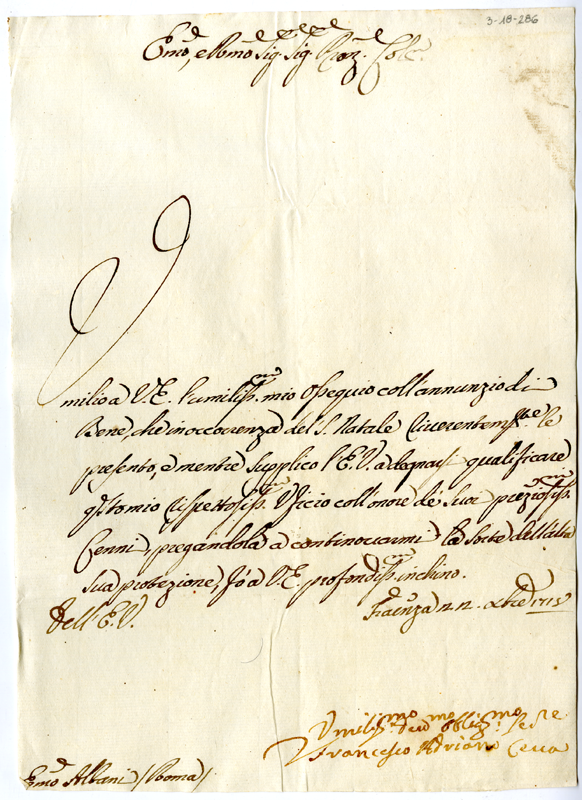 3-18-286
Emo, e Rmo Sig. Sig. Pron. Col.
Umilio a V.E. l'umiliss.mo mio Ossequio coll'annunzio di
Bene, che in occorrenza del S. Natale riverentemte. le
presento, e mentre supplico l'E.V. a degnarsi qualificare
qsto mio rispettosiss.mo Uficio coll'onore de' suoi preziosiss.mi
Cenni, pregandola a continovarmi la sorte dell'alta
sua protezione, fò a V.E. profondiss.mo inchino.
Dell'E.V.
Faenza 22. xbre 1715
Umiliss.mo dev.mo obblig.mo Ser.re
Francesco Adriano Ceva
Emo Albani /Roma/